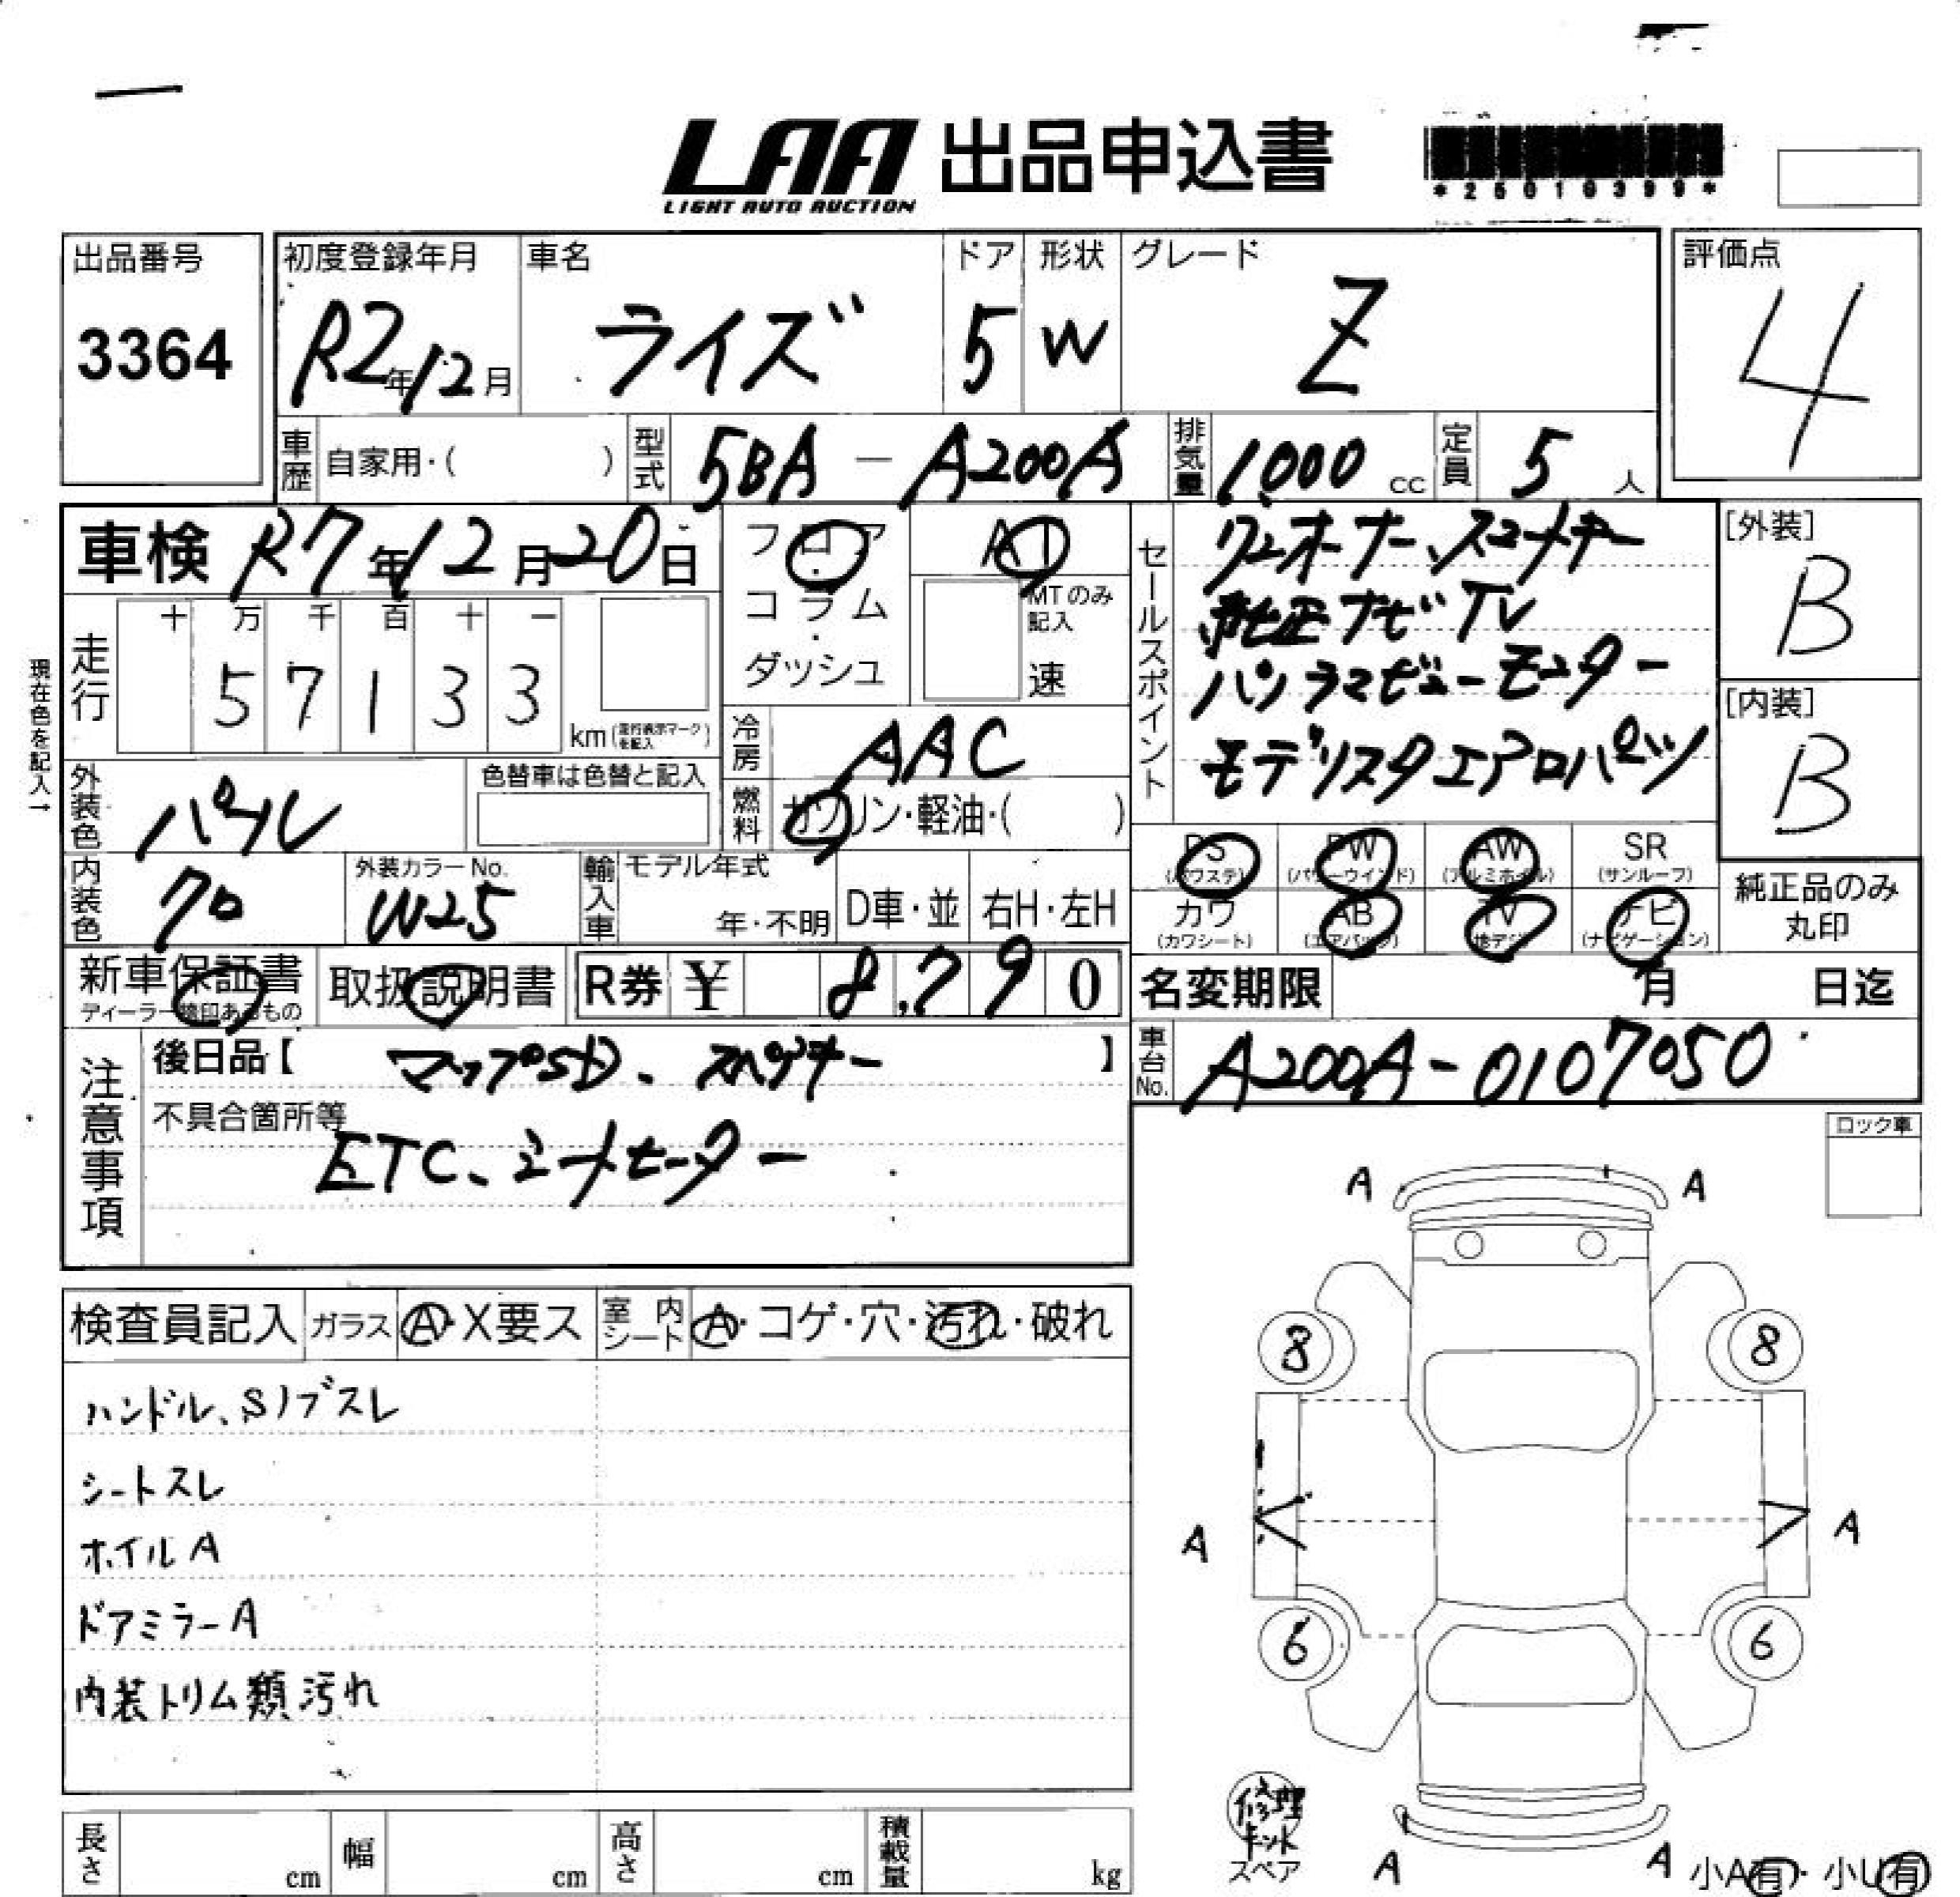 LAA 出品申込書
LIGHT AUTO AUCTION
*25010399*
出品番号
3364
初度登録年月
R2年12月
車名
ライズ
ドア
5
形状
W
グレード
Z
評価点
4
車歴 自家用・( )
型式 5BA-A200A
排気量 1,000 cc
定員 5 人
車検 R7年12月20日
フロア・コラム・ダッシュ
AT
MTのみ記入
速
セールスポイント
ワンオーナー、スマートキー
純正ナビTV
パノラマビューモニター
モデリスタエアロパーツ
[外装]
B
[内装]
B
現在色を記入→
走行
十 万 千 百 十 一
5 7 1 3 3
km (走行表示マークを記入)
冷房 AAC
燃料 ガソリン・軽油・( )
外装色 パール
色替車は色替と記入
内装色 クロ
外装カラーNo.
W25
輸入車
モデル年式
年・不明
D車・並
右H・左H
PS (パワステ)
PW (パワーウインド)
AW (アルミホイル)
SR (サンルーフ)
カワ (カワシート)
AB (エアバック)
TV (地デジ)
ナビ (ナビゲーション)
純正品のみ丸印
新車保証書
ディーラー捺印あるもの
取扱説明書
R券 ¥ 8,790
名変期限 月 日迄
車台No. A200A-0107050
注意事項
後日品【 マップSD、スペアキー 】
不具合箇所等
ETC、
ロック車
検査員記入
ガラス A・X要ス
室内シート A・コゲ・穴・汚れ・破れ
ハンドル、Sノブスレ
シートスレ
ホイルA
ドアミラーA
内装トリム類汚れ
A A
8 8
A A
6 6
修理キット
スペア
A A
小A有・小U有
長さ cm
幅 cm
高さ cm
積載量 kg